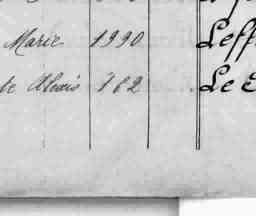 Marie 1990 Leff
te Alexis 162 Le